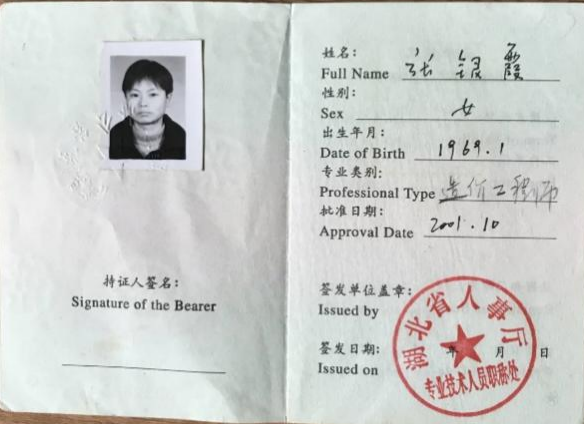 持证人签名：
Signature of the Bearer
姓名：
Full Name 张银霞
性别：
Sex 女
出生年月：
Date of Birth 1969.1
专业类别：
Professional Type 造价工程师
批准日期：
Approval Date 2001.10
签发单位盖章：
Issued by
签发日期： 年 月 日
Issued on
湖北省人事厅
专业技术人员职称处